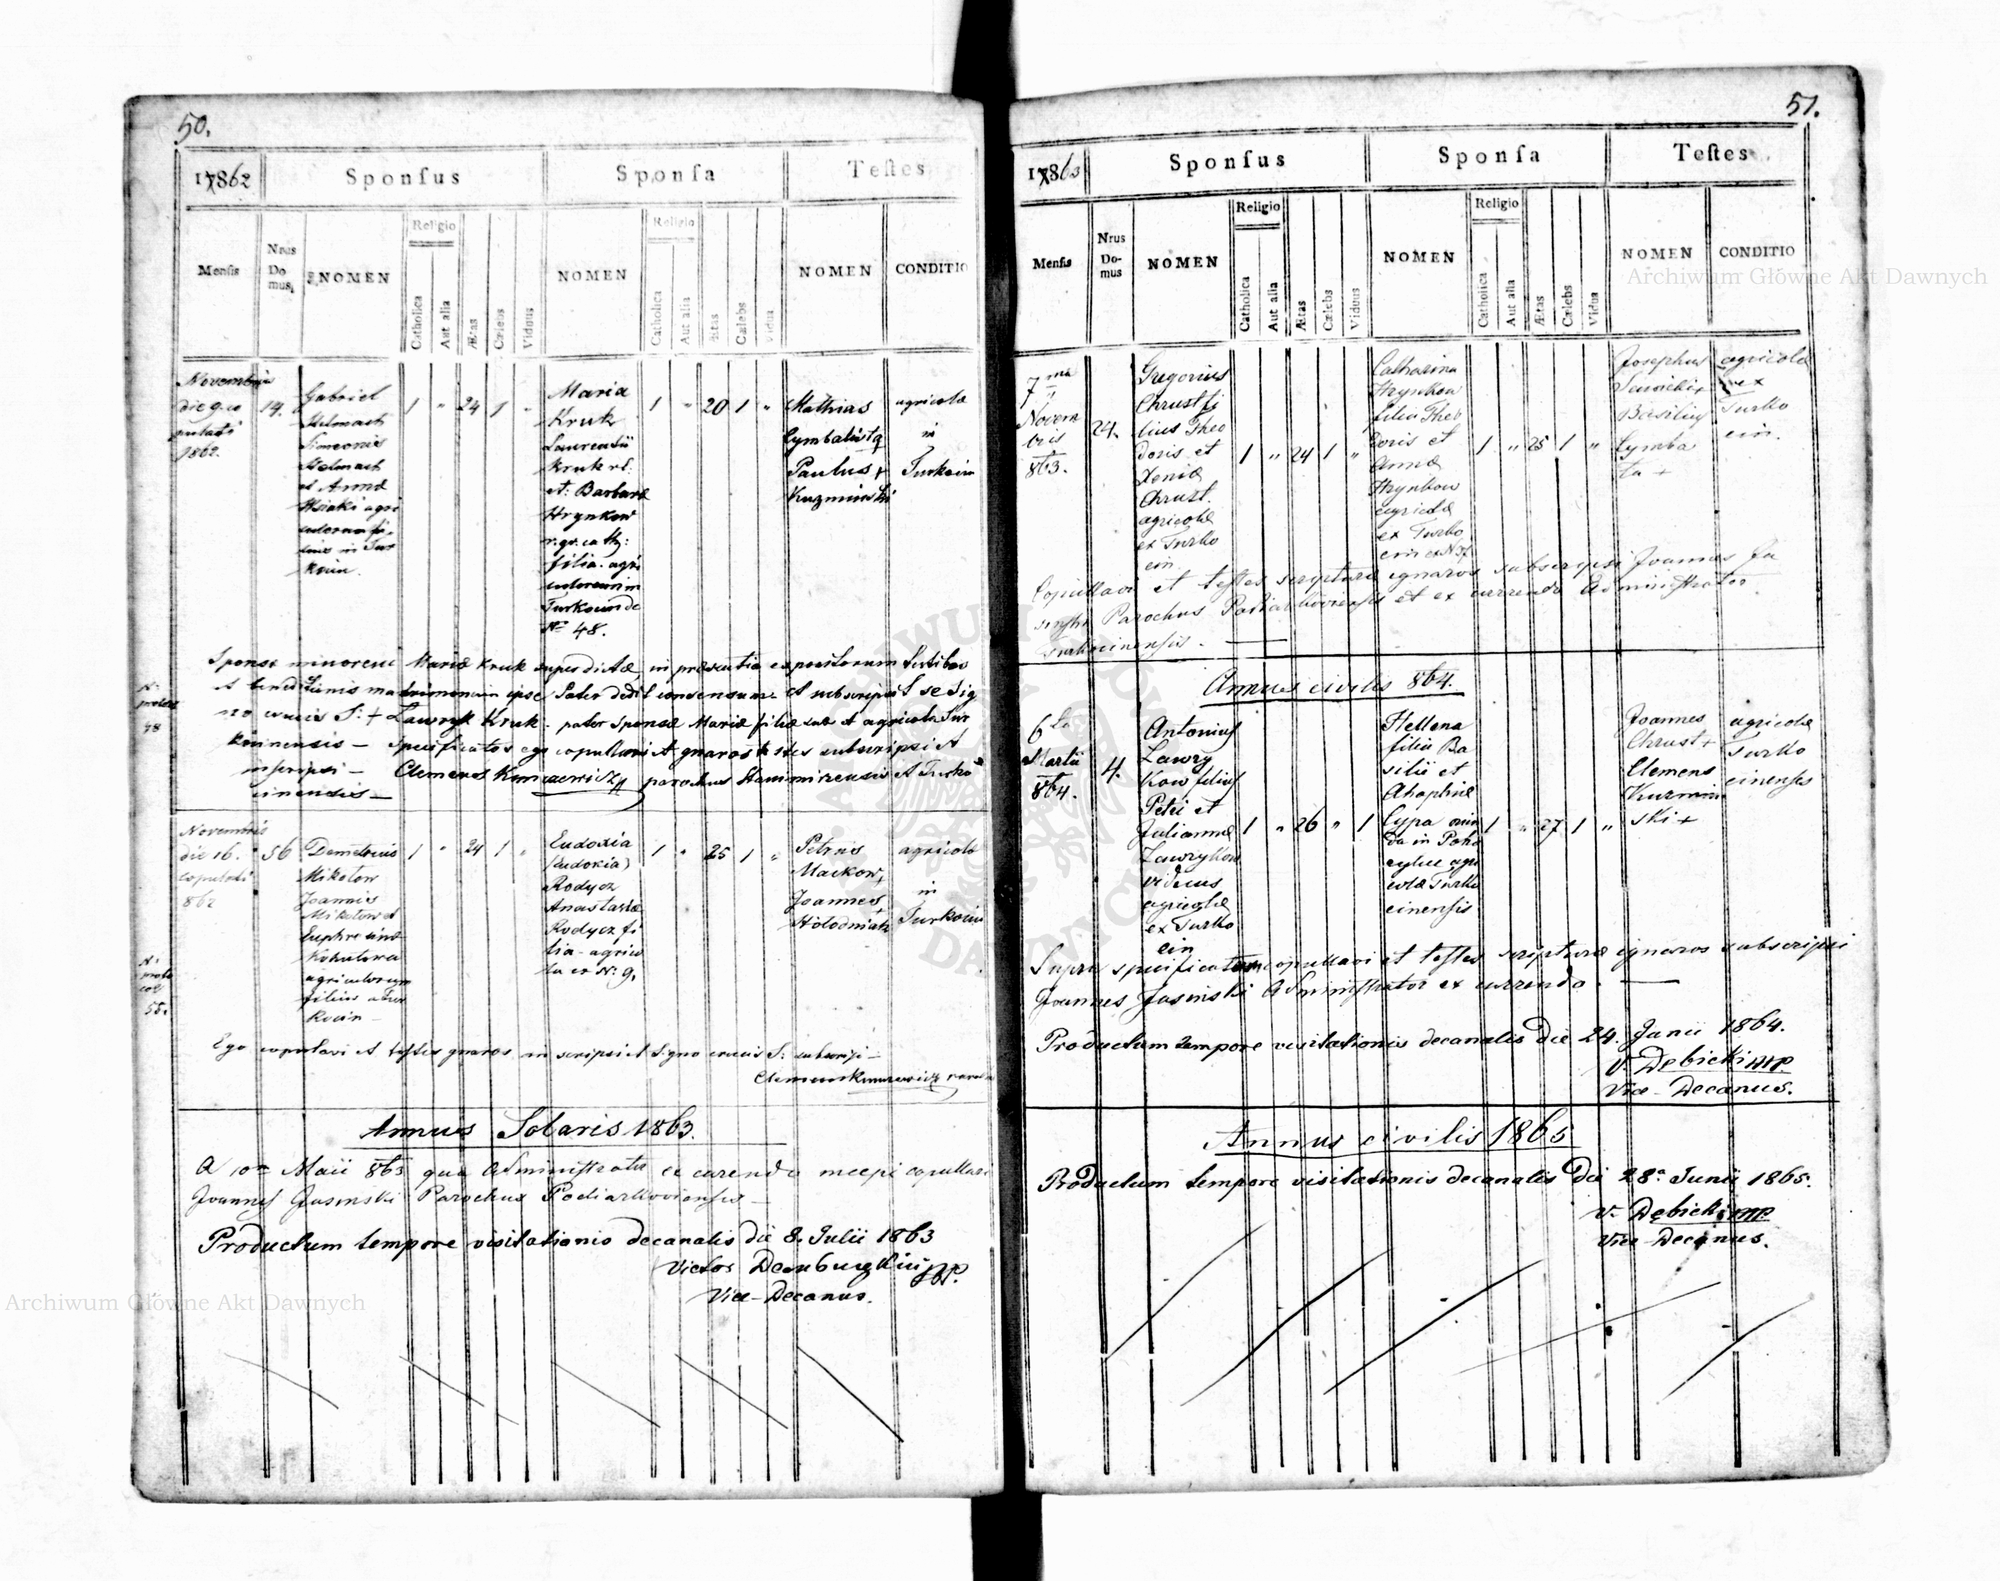 50.
1862
Sponsus
Sponsa
Testes
Mensis
Nrus Domus
NOMEN
Religio
Catholica
Aut alia
Ætas
Cælebs
Viduus
NOMEN
Religio
Catholica
Aut alia
Ætas
Cælebs
Vidua
NOMEN
CONDITIO
Novembris
die 9. co
pulati
1862.
14.
Gabriel
Helmach
Simeonis
Helmach
et Annæ
agri
in Tur
1 " 24 1 "
Maria
Kruk
Laurentii
Kruk
et: Barbaræ
Hrynkow
r. gr. cath:
filia agri
Turkoin de
Nº 48.
1 " 20 1 "
Mathias
Cymbalista
Paulus +
Kuzminski
agricolæ
in
Turkoin
Sponsæ minoreni Mariæ Kruk supra dictæ, in præsentia
ipse Pater dedit consensum et subscripsit se sig
no crucis S: + Lawryk Kruk - pater Sponsæ Mariæ filiæ suæ et agricola Tur
kocinensis - Specificatos ego copulavi et gnaros testes subscripsi et
inscripsi - Clemens parochus et Turko
cinensis -
Novembris
die 16.
copulati
862
56
Demetrius
Mikolow
Joannis
Mikolow et
Euphrosinæ
agricolarum
filius
1 " 24 1 "
Eudoxia
(Eudokia)
Rodycz
Anastasiæ
Rodycz fi
lia - agrico
la ex N: 9,
1 " 25 1 "
Petrus
Mackow,
Joannes
Holodniak
agricolæ
in
Turkoin
Nº
protoc
48
Nº
proto
col
55.
Ego copulavi et testes gnaros inscripsi et signo crucis S: subscripsi -
Clemens
Annus Solaris 1863.
A 10a Maii 863 qua Administrator ex currendo incepi copullari
Joannes Jasinski Parochus
Productum tempore visitationis decanalis die 8. Julii 1863
Victor mp.
Vice-Decanus.
51.
1863
Sponsus
Sponsa
Testes
Mensis
Nrus Domus
NOMEN
Religio
Catholica
Aut alia
Ætas
Cælebs
Viduus
NOMEN
Religio
Catholica
Aut alia
Ætas
Cælebs
Vidua
NOMEN
CONDITIO
7ma
Novem
bris
863.
24.
Gregorius
Chrust fi
lius Theo
doris et
Xeniæ
Chrust.
agricolæ
ex Turko
cin
1 " 24 1 "
Catharina
Hrynkow
filia Theo
doris et
Annæ
Hrynkow
agricolæ
ex Turko
cin ex N
1 " 25 1 "
Josephus
Basilius
Cymba
ta +
agricolæ
ex
Turko
cin.
Copullavi et testes scripturæ ignaros subscripsi Joannes Ja
sinski Parochus et ex currendo Administrator
Turkocinensis. -
Annus civilis 864.
6ta
Martii
864.
4.
Antonius
Lawry
kow filius
Petri et
Juliannæ
Lawrykow
viduus
agricolæ
ex Turko
cin
1 " 26 " 1
Hellena
filia Ba
silii et
Ahaphiæ
Cypa
agri
colæ Turko
cinensis
1 " 27 1 "
Joannes
Chrust +
Clemens
Kuzmin
ski +
agricolæ
Turko
cinensis
Supra specificatum copullavi et testes scripturæ ignaros subscripsi
Joannes Jasinski Administrator ex currendo. -
Productum tempore visitationis decanalis die 24. Junii 1864.
V. Dębicki mp
Vice-Decanus.
Annus civilis 1865
Productum tempore visitationis decanalis die 28a Junii 1865.
V. Dębicki mp.
Vice-Decanus.
Archiwum Główne Akt Dawnych
Archiwum Główne Akt Dawnych
ARCHIWUM GŁÓWNE AKT DAWNYCH